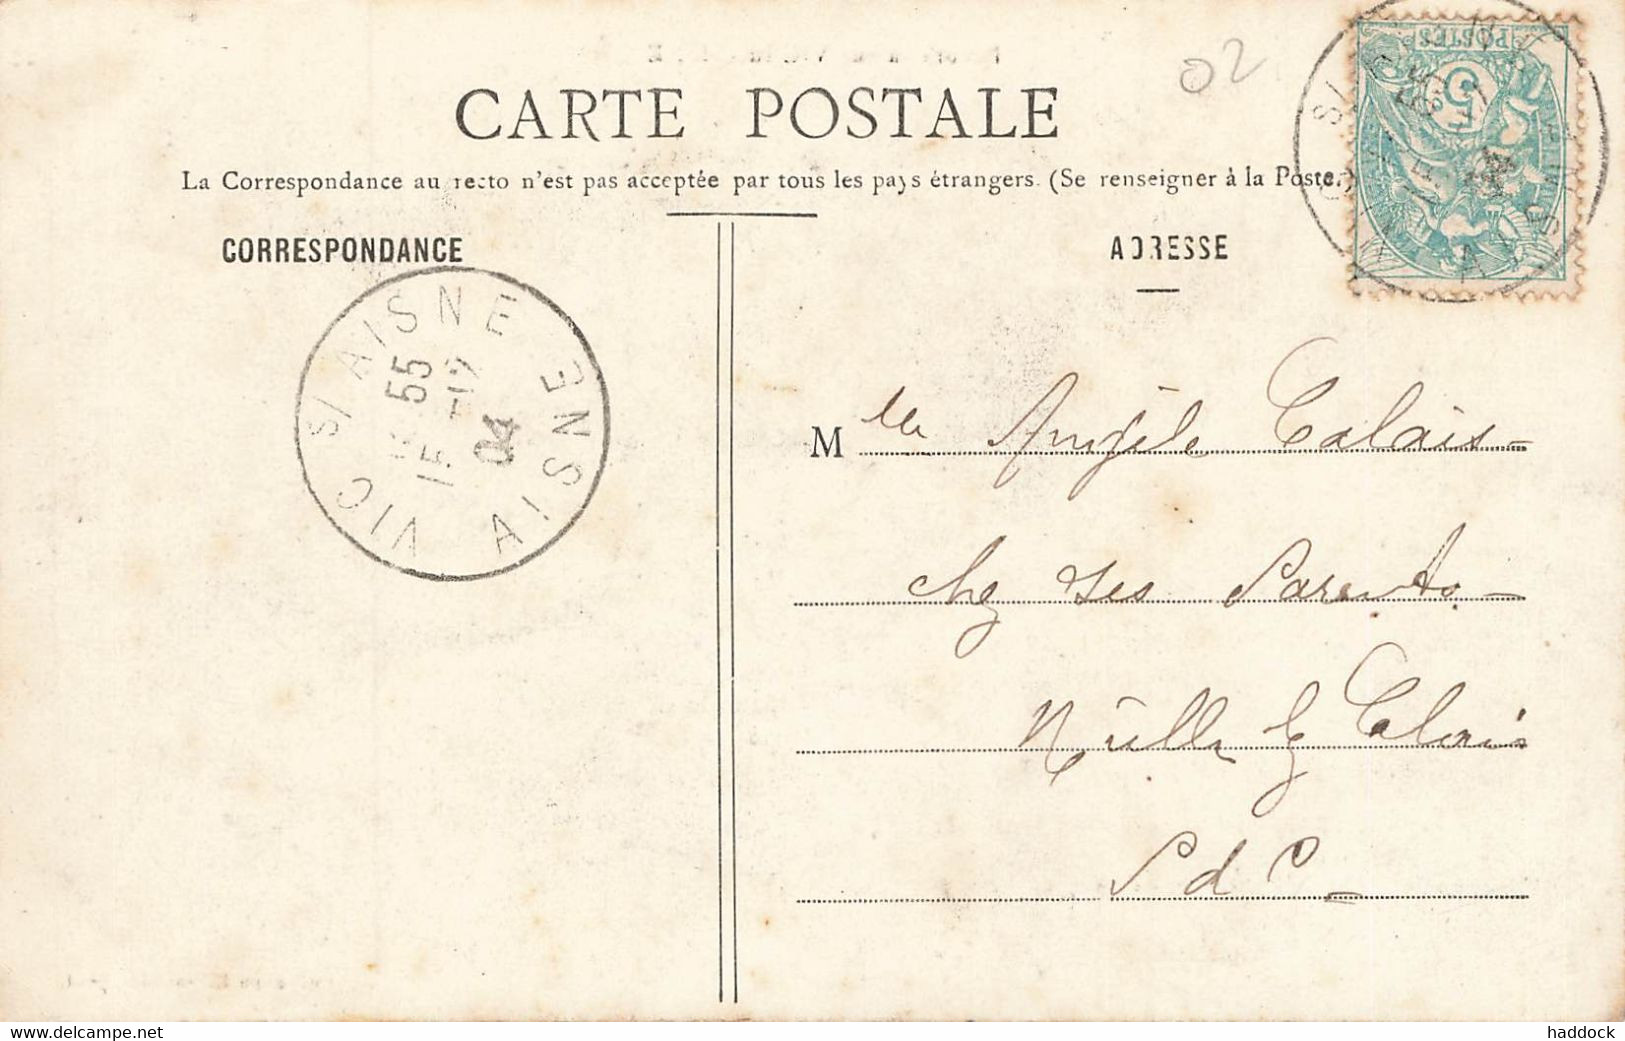 02
CARTE POSTALE
La Correspondance au recto n'est pas acceptée par tous les pays étrangers. (Se renseigner à la Poste.)
CORRESPONDANCE
ADRESSE
POSTES
5
VIC S/ AISNE
55
04
AISNE
Mlle Angèle Calais
chez ses Parents
Calais
P d C
www.delcampe.net
haddock